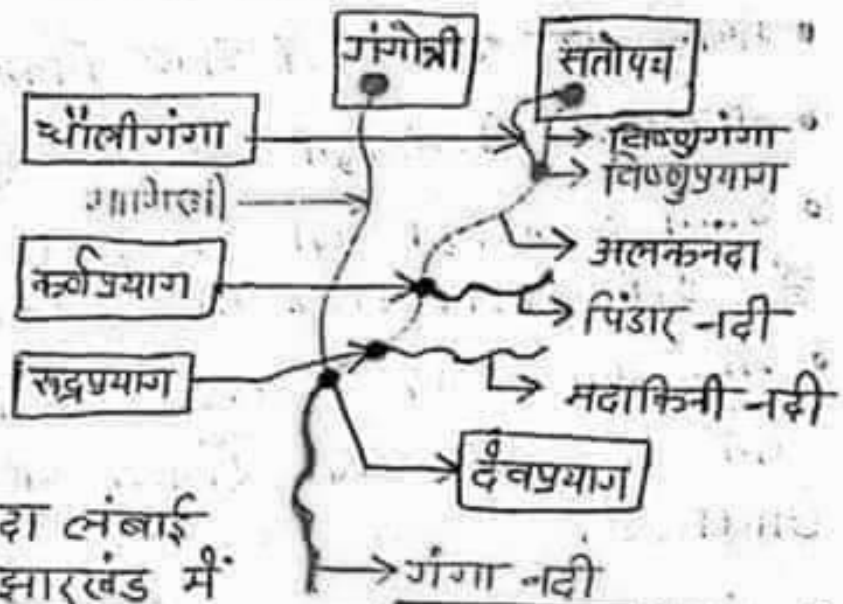 गंगोत्री
सतोपथ
धौलीगंगा
विष्णुगंगा
विष्णुप्रयाग
अलकनंदा
कर्णप्रयाग
पिंडार नदी
रूद्रप्रयाग
मदाकिनी नदी
देवप्रयाग
दा लंबाई
झारखंड में
गंगा नदी